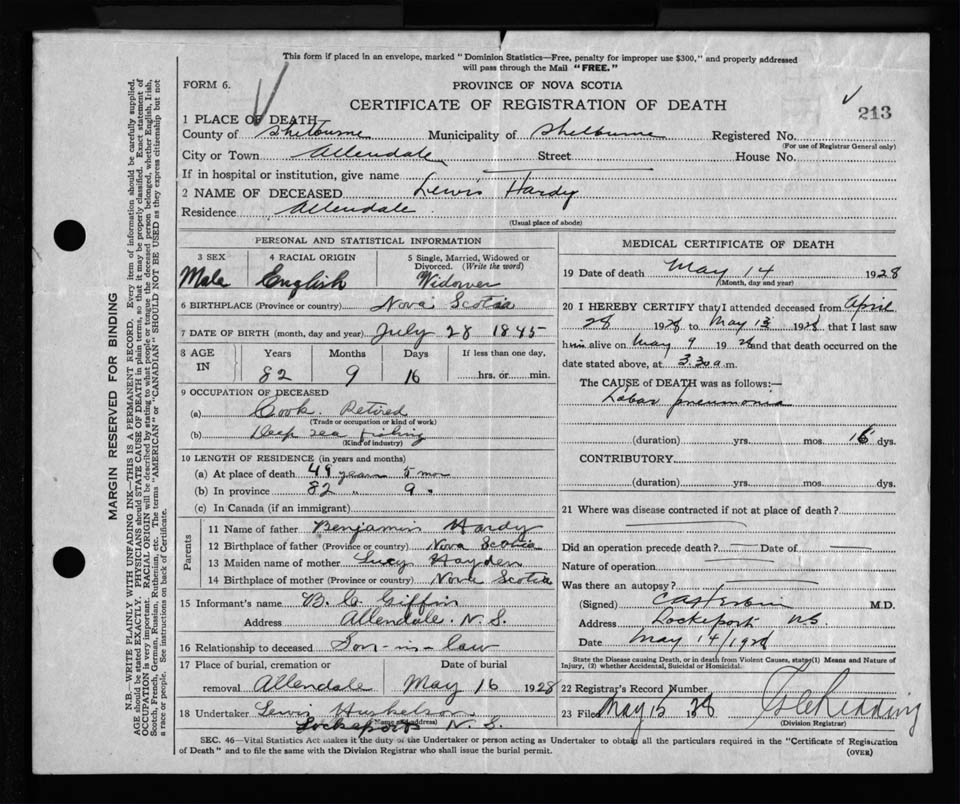 This form if placed in an envelope, marked "Dominion Statistics—Free, penalty for improper use $300," and properly addressed
will pass through the Mail "FREE."
FORM 6.
PROVINCE OF NOVA SCOTIA
CERTIFICATE OF REGISTRATION OF DEATH
213
1 PLACE OF DEATH
County of Shelburne Municipality of Shelburne Registered No.
(For use of Registrar General only)
City or Town Allendale Street House No.
If in hospital or institution, give name
2 NAME OF DECEASED Lewis Hardy
Residence Allendale
(Usual place of abode)
PERSONAL AND STATISTICAL INFORMATION
3 SEX 4 RACIAL ORIGIN 5 Single, Married, Widowed or Divorced. (Write the word)
Male English Widower
6 BIRTHPLACE (Province or country) Nova Scotia
7 DATE OF BIRTH (month, day and year) July 28 1845
8 AGE IN Years Months Days If less than one day,
82 9 16 hrs. or min.
9 OCCUPATION OF DECEASED
(a) Cook. Retired
(Trade or occupation or kind of work)
(b) Deep sea fishing
(Kind of industry)
10 LENGTH OF RESIDENCE (in years and months)
(a) At place of death 49 years 5 mon
(b) In province 82 " 9 "
(c) In Canada (if an immigrant)
Parents
11 Name of father Benjamin Hardy
12 Birthplace of father (Province or country) Nova Scotia
13 Maiden name of mother Lucy Hayden
14 Birthplace of mother (Province or country) Nova Scotia
15 Informant's name B. C. Giffin
Address Allendale. N. S.
16 Relationship to deceased Son-in-law
17 Place of burial, cremation or removal Allendale Date of burial May 16 1928
18 Undertaker Lewis Huskelson
(Name and address)
Lockeport N. S.
MEDICAL CERTIFICATE OF DEATH
19 Date of death May 14 1928
(Month, day and year)
20 I HEREBY CERTIFY that I attended deceased from April
28 1928 to May 13 1928 that I last saw
him alive on May 9 1928 and that death occurred on the
date stated above, at 3.30 a m.
The CAUSE of DEATH was as follows:—
Lobar pneumonia
(duration) yrs. mos. 16 dys.
CONTRIBUTORY
(duration) yrs. mos. dys.
21 Where was disease contracted if not at place of death?
Did an operation precede death Date of
Nature of operation
Was there an autopsy?
(Signed) M.D.
Address Lockeport NS
Date May 14/1928
State the Disease causing Death, or in death from Violent Causes, state (1) Means and Nature of
Injury, (2) whether Accidental, Suicidal or Homicidal.
22 Registrar's Record Number
23 Filed May 15 28 Redding
(Division Registrar)
SEC. 46—Vital Statistics Act makes it the duty of the Undertaker or person acting as Undertaker to obtain all the particulars required in the "Certificate of Registration
of Death" and to file the same with the Division Registrar who shall issue the burial permit.
(OVER)
MARGIN RESERVED FOR BINDING
N.B.—WRITE PLAINLY WITH UNFADING INK—THIS IS A PERMANENT RECORD. Every item of information should be carefully supplied.
AGE should be stated EXACTLY. PHYSICIANS should STATE CAUSE OF DEATH in plain terms, so that it may be properly classified. Exact statement of
OCCUPATION is very important. RACIAL ORIGIN will be described by stating to what people or tongue the deceased person belonged, whether English, Irish,
Scotch, French, German, Russian, Ruthenian, etc. The terms "AMERICAN" or "CANADIAN" SHOULD NOT BE USED as they express citizenship but not
a race or people. See instructions on back of Certificate.